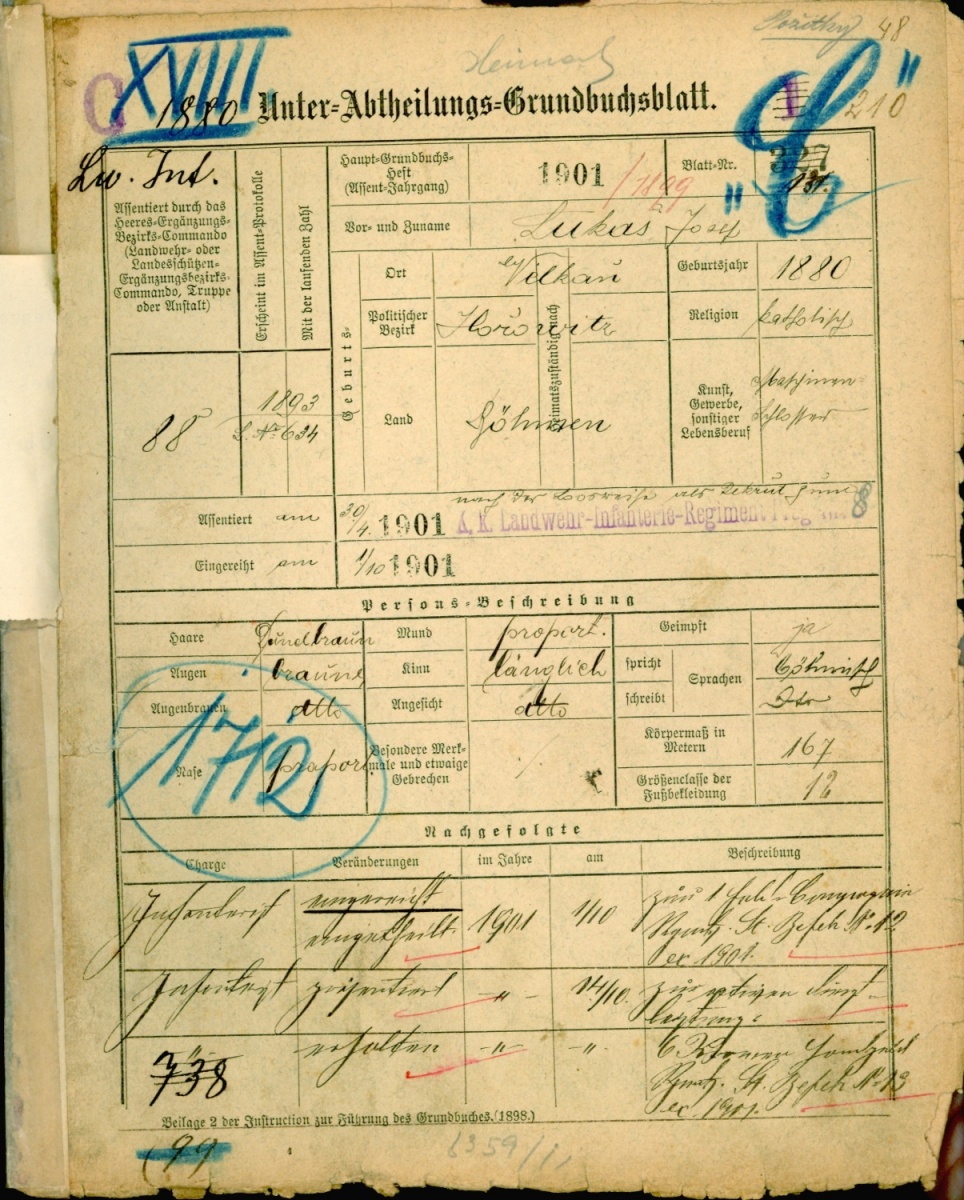 48
Heimat
XVIII
1880
Unter-Abtheilungs-Grundbuchsblatt.
1
210
Lw. Inf.
Assentiert durch das
Heeres-Ergänzungs-
Bezirks-Commando
(Landwehr- oder
Landesschützen-
Ergänzungsbezirks-
Commando, Truppe
oder Anstalt)
Erscheint im Assent-Protokolle
Mit der laufenden Zahl
88
1893
L. No 634
Haupt-Grundbuchs-
Heft
(Assent-Jahrgang)
1901
/1899
Blatt-Nr.
327
131.
Vor- und Zuname
Lukas Josef
Geburts-
Ort
Velkau
Geburtsjahr
1880
Politischer
Bezirk
Hořowitz
Heimatszuständig nach
Religion
katholisch
Land
Böhmen
Kunst,
Gewerbe,
sonstiger
Lebensberuf
Maschinen-
schlosser
nach der Losreihe als Rekrut zum
Assentiert am
30/4 1901
K. K. Landwehr-Infanterie-Regiment Prag Nr. 8
Eingereiht am
1/10 1901
Persons-Beschreibung
Haare
dunelbraun
Mund
proport.
Geimpft
ja
Augen
braune
Kinn
länglich
spricht
Sprachen
Böhmisch
Augenbrauen
dtto
Angesicht
dtto
schreibt
Dto
Nase
proport.
Besondere Merk-
male und etwaige
Gebrechen
/
Körpermaß in
Metern
167
Größenclasse der
Fußbekleidung
12
1712
Nachgefolgte
Charge
Veränderungen
im Jahre
am
Beschreibung
Infanterist
eingereiht
eingetheilt
1901
1/10
zur 1 Feld-Compagnie
Rgmts. St. Befeh No 12
ex 1901.
Infanterist
präsentiert
-"-
14/10.
zur aktiven Dienst-
leistung.
"
738
erhalten
-"-
-"-
6 Kronen Handgeld
Rgmts. St. Befeh No 13
ex 1901.
Beilage 2 der Instruction zur Führung des Grundbuches. (1898.)
(99